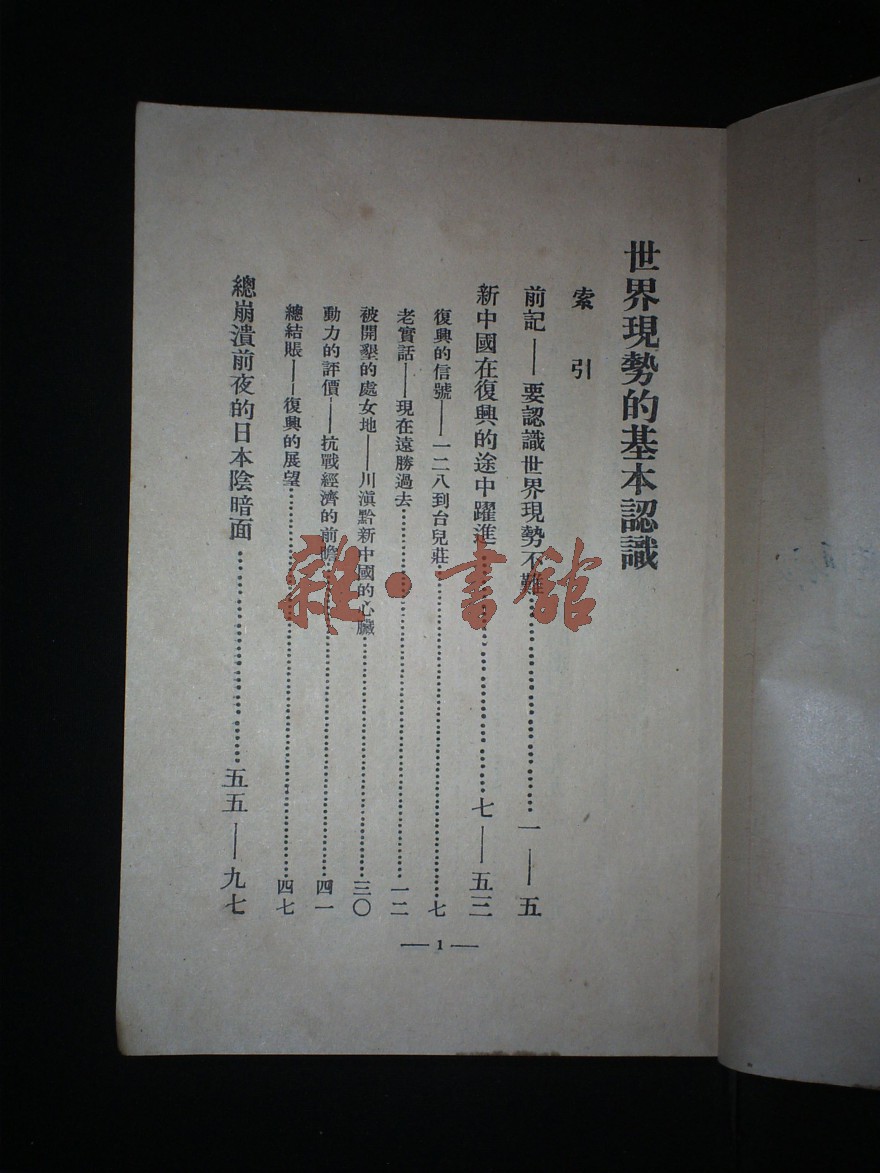 世界現勢的基本認識
索引
前記——要認識世界現勢不難…………一——五
新中國在復興的途中躍進…………七——五三
復興的信號——一二八到台兒莊…………七
老實話——現在遠勝過去…………一二
被開墾的處女地——川滇黔新中國的心臟…………三〇
動力的評價——抗戰經濟的前瞻…………四一
總結賬——復興的展望…………四七
總崩潰前夜的日本陰暗面…………五五——九七
— 1 —
雜·書館